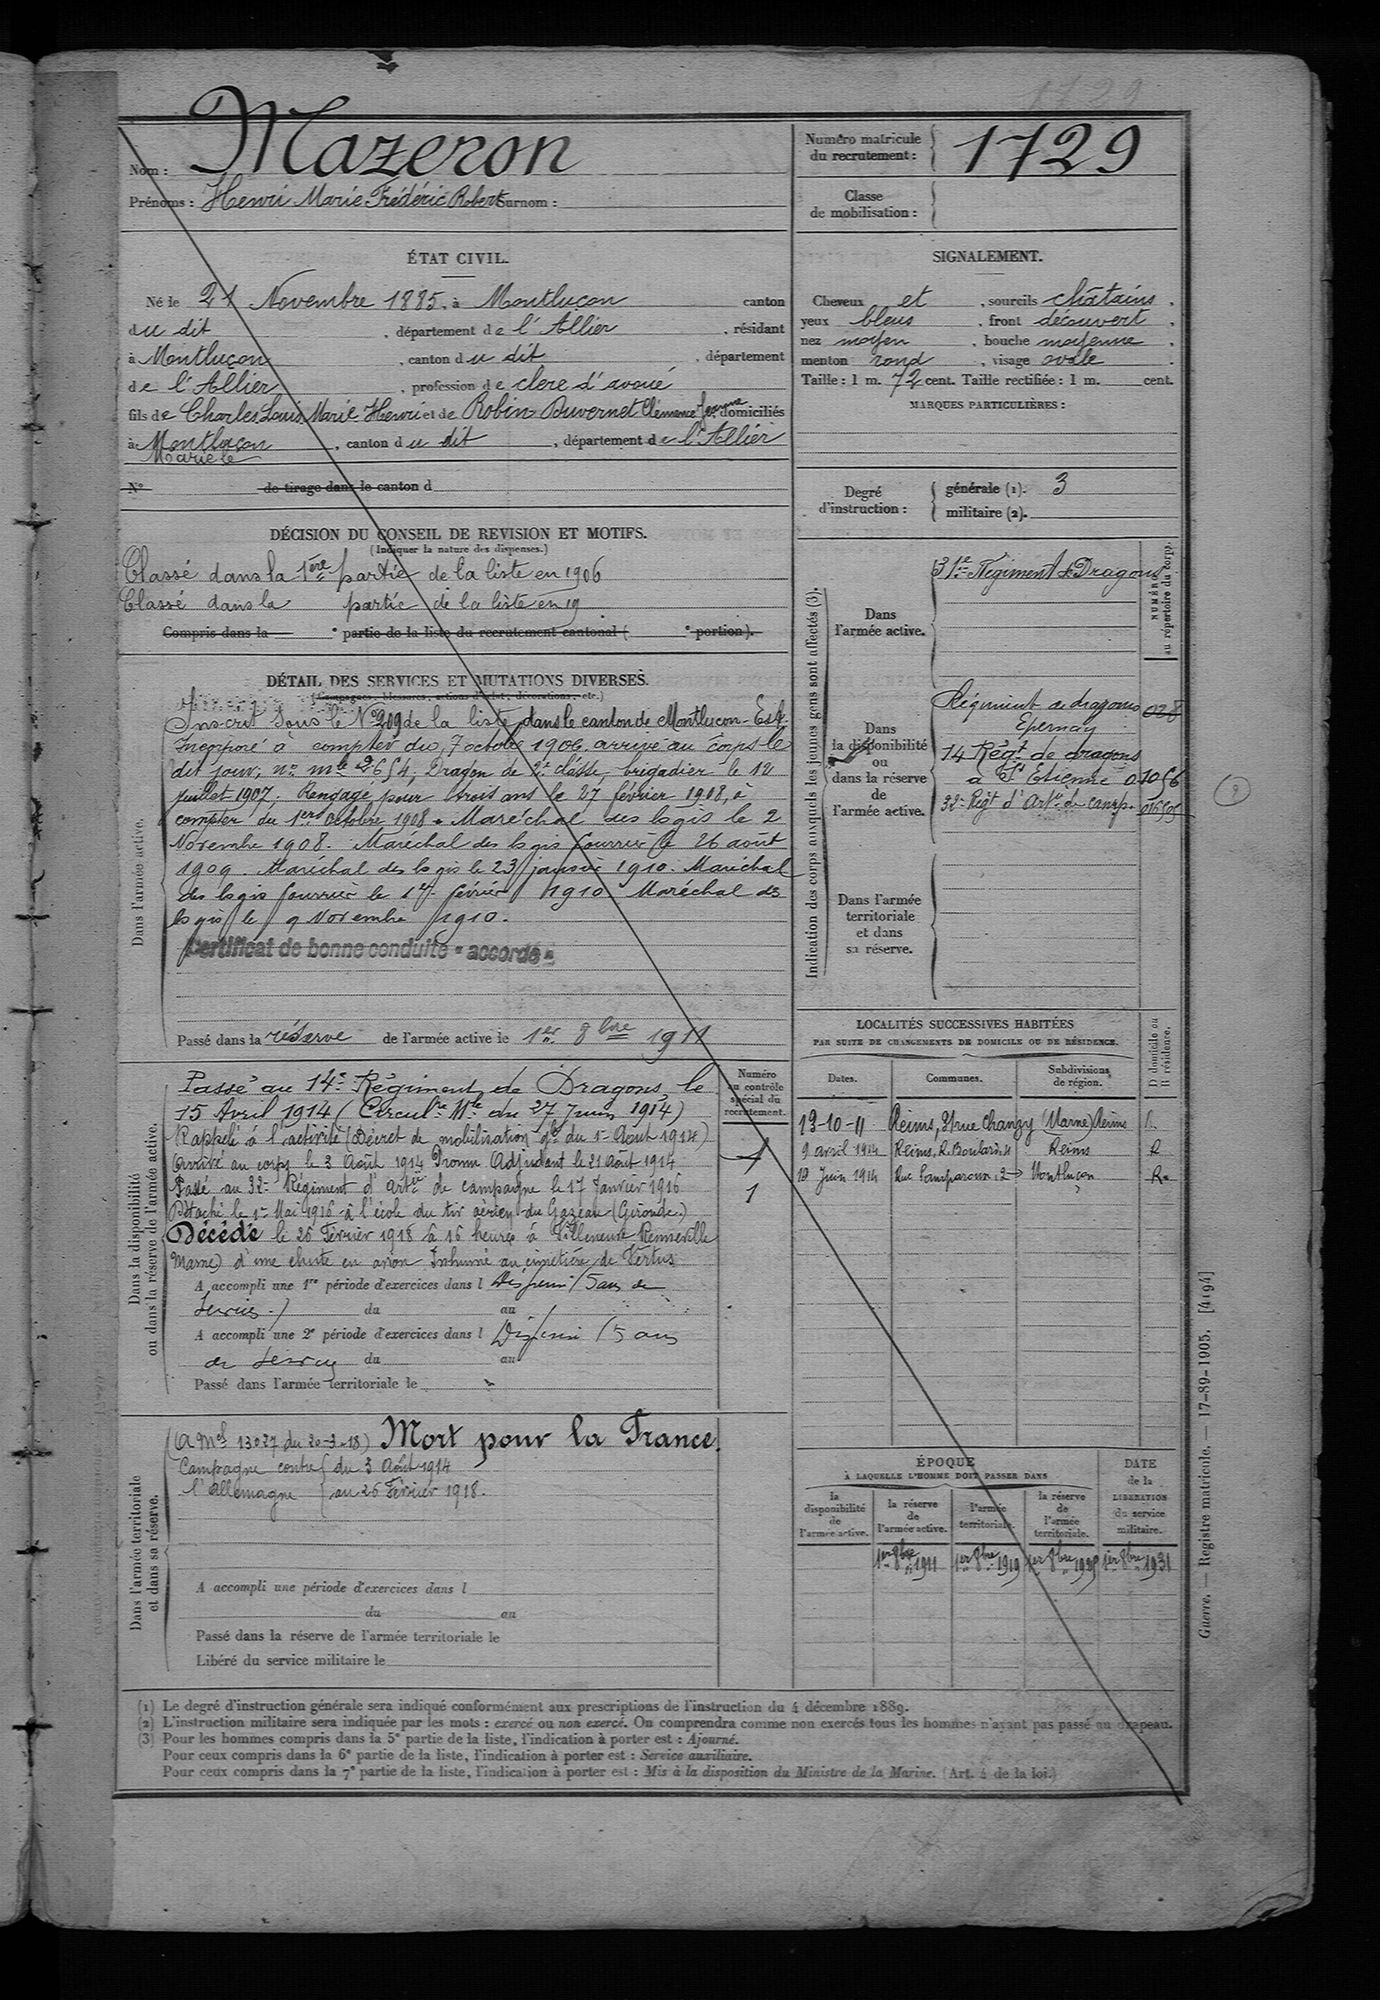 1729
Nom : Mazeron
Prénoms : Henri Marie Frédéric Robert Surnom :
Numéro matricule du recrutement : 1729
Classe de mobilisation :
ÉTAT CIVIL.
Né le 21 Novembre 1885, à Montluçon canton
du dit, département de l'Allier, résidant
à Montluçon, canton du dit, département
de l'Allier, profession de clerc d'avoué
fils de Charles Louis Marie Henri et de Robin Duvernet Clémence Jeanne domiciliés
à Montluçon, canton du dit, département de l'Allier
Marié le
N° de tirage dans le canton d
SIGNALEMENT.
Cheveux et, sourcils châtains,
yeux bleus, front découvert,
nez moyen, bouche moyenne,
menton rond, visage ovale.
Taille : 1 m. 72 cent. Taille rectifiée : 1 m. cent.
MARQUES PARTICULIÈRES :
Degré d'instruction :
générale (1). 3
militaire (2).
DÉCISION DU CONSEIL DE REVISION ET MOTIFS.
(Indiquer la nature des dispenses.)
Classé dans la 1ère partie de la liste en 1906
Classé dans la partie de la liste en 19
Compris dans la e partie de la liste du recrutement cantonal ( e portion).
DÉTAIL DES SERVICES ET MUTATIONS DIVERSES.
(Campagnes, blessures, actions d'éclat, décorations, etc.)
Dans l'armée active.
Inscrit sous le N° 209 de la liste dans le canton de Montluçon-Est.
Incorporé à compter du 7 octobre 1906, arrivé au corps le
dit jour, n° mle 2654, Dragon de 2e classe, brigadier le 12
juillet 1907. Rengagé pour trois ans le 27 février 1908, à
compter du 1er octobre 1908. Maréchal des logis le 2
Novembre 1908. Maréchal des logis fourrier le 26 août
1909. Maréchal des logis le 23 janvier 1910. Maréchal
des logis fourrier le 1er février 1910 Maréchal des
logis le 9 Novembre 1910.
Certificat de bonne conduite "accordé"
Passé dans la réserve de l'armée active le 1er 8bre 1911
Indication des corps auxquels les jeunes gens sont affectés (3).
NUMÉRO au répertoire du corps.
Dans l'armée active.
31e Régiment de Dragons
Dans la disponibilité ou dans la réserve de l'armée active.
Régiment de dragons 028
Epernay
14 Régt de dragons
à St Etienne 01056
32e Régt d'Artie de camp.
Dans l'armée territoriale et dans sa réserve.
Dans la disponibilité ou dans la réserve de l'armée active.
Numéro au contrôle spécial du recrutement.
Passé au 14e Régiment de Dragons, le
15 Avril 1914 (Circulre Mle du 27 Juin 1914)
Rappelé à l'activité (Décret de mobilisation gle du 1er Août 1914)
Arrivé au corps le 3 Août 1914 Promu Adjudant le 21 Août 1914
Passé au 32e Régiment d'Artie de campagne le 17 Janvier 1916
1
Détaché le 1er Mai 1916 à l'école du tir aérien du Cazeau (Gironde.)
Décédé le 26 Février 1918 à 16 heures à Villeneuve Renneville
Marne) d'une chute en avion Inhumé au cimetière de Vertus
A accompli une 1re période d'exercices dans l Dispensé (5 ans de
service.) du au
A accompli une 2e période d'exercices dans l Dispensé (5 ans
de service du au
Passé dans l'armée territoriale le
LOCALITÉS SUCCESSIVES HABITÉES
PAR SUITE DE CHANGEMENTS DE DOMICILE OU DE RÉSIDENCE.
Dates. Communes. Subdivisions de région. D domicile ou R résidence.
13-10-11 Reims, rue Chanzy (Marne) Reims R.
9 avril 1914 Reims, R. Boulard, Reims R
19 Juin 1914 Rue 2 Montluçon R.
Dans l'armée territoriale et dans sa réserve.
(A Mel 13027 du 20-3-18) Mort pour la France.
Campagne contre l'Allemagne
du 3 Août 1914
au 26 Février 1918.
A accompli une période d'exercices dans l
du au
Passé dans la réserve de l'armée territoriale le
Libéré du service militaire le
ÉPOQUE
À LAQUELLE L'HOMME DOIT PASSER DANS
la disponibilité de l'armée active.
la réserve de l'armée active.
l'armée territoriale.
la réserve de l'armée territoriale.
DATE de la LIBÉRATION du service militaire.
1er 8bre 1911 1er 8bre 1919 1er 8bre 1925 1er 8bre 1931
(1) Le degré d'instruction générale sera indiqué conformément aux prescriptions de l'instruction du 4 décembre 1889.
(2) L'instruction militaire sera indiquée par les mots : exercé ou non exercé. On comprendra comme non exercés tous les hommes n'ayant pas passé au drapeau.
(3) Pour les hommes compris dans la 5e partie de la liste, l'indication à porter est : Ajourné.
Pour ceux compris dans la 6e partie de la liste, l'indication à porter est : Service auxiliaire.
Pour ceux compris dans la 7e partie de la liste, l'indication à porter est : Mis à la disposition du Ministre de la Marine. (Art. 4 de la loi.)
Guerre. — Registre matricule. — 17-89-1905. [4194]